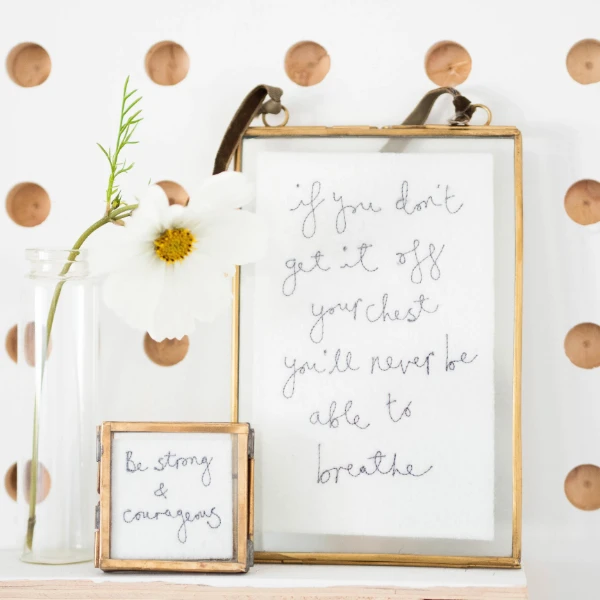 if you don't
get it off
your chest
you'll never be
able to
breathe
Be strong
&
courageous